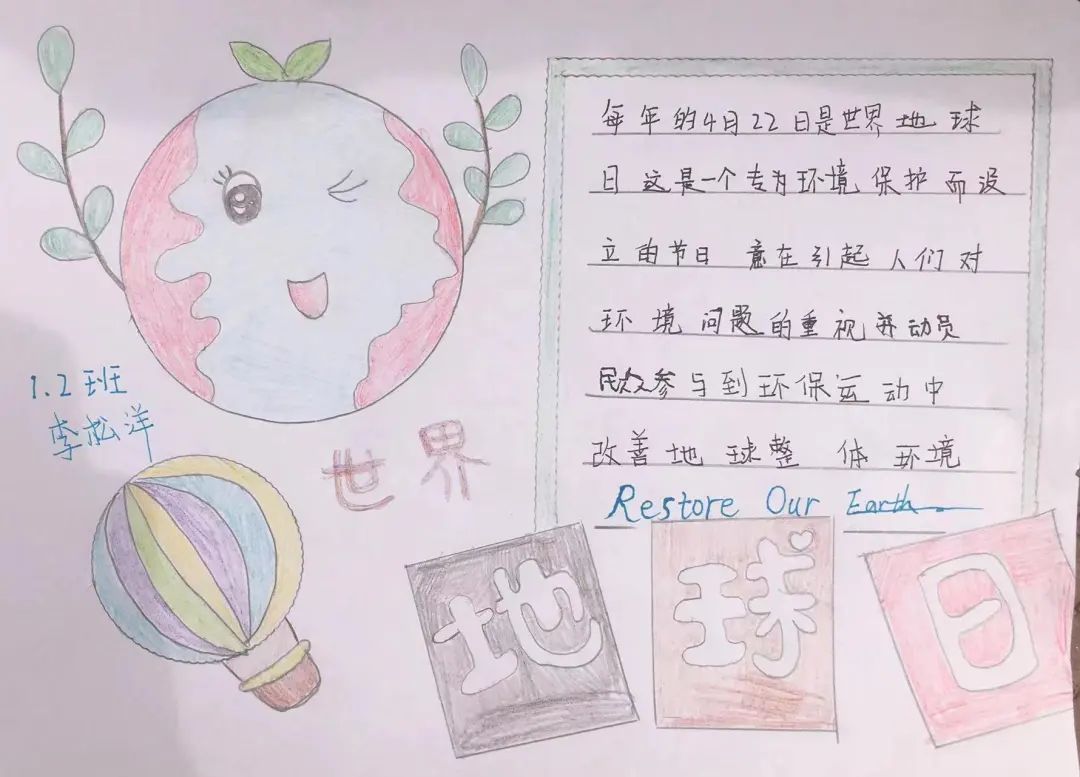 每年的4月22日是世界地球
日 这是一个专为环境保护而设
立的节日 意在引起人们对
环境问题的重视并动员
民众参与到环保运动中
改善地球整体环境
Restore Our Earth
1.2班
李松洋
世界
地球日